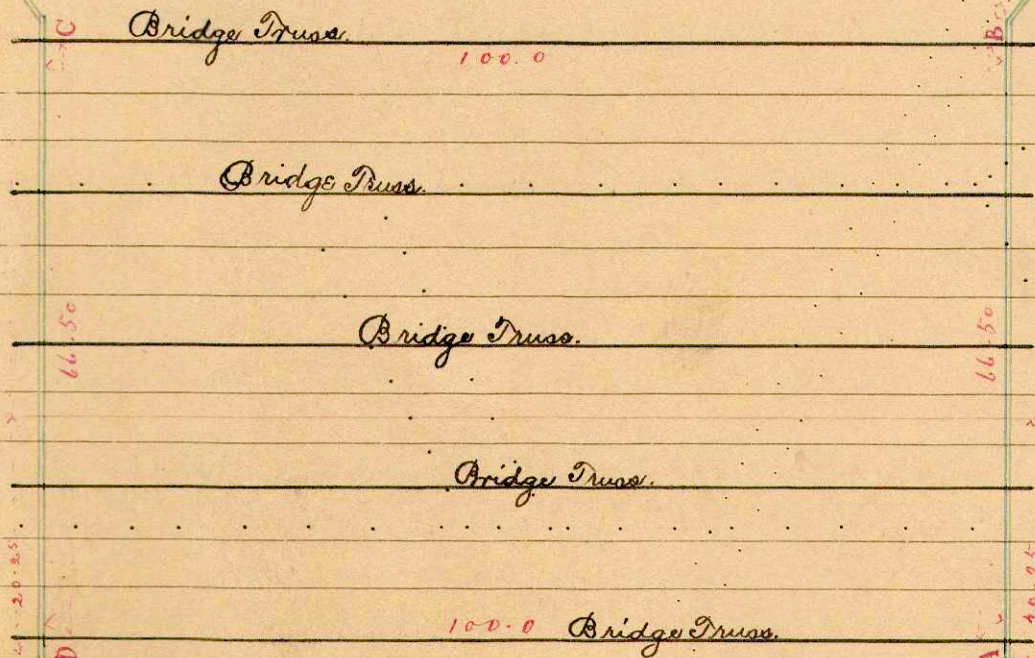 C Bridge Truss. B
100.0
Bridge Truss.
66.50 Bridge Truss. 66.50
Bridge Truss.
20.25
100.0 Bridge Truss.
D A